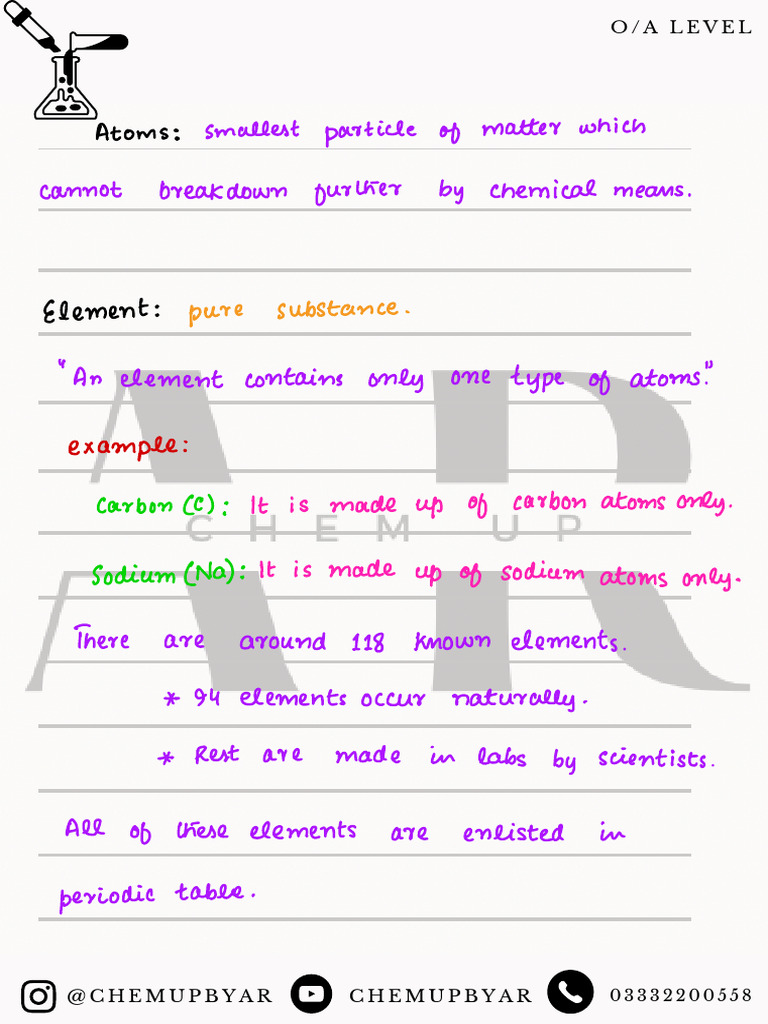 O/A LEVEL
Atoms: smallest particle of matter which
cannot breakdown further by chemical means.
Element: pure substance.
"An element contains only one type of atoms."
example:
Carbon (C): It is made up of carbon atoms only.
CHEM UP
Sodium (Na): It is made up of sodium atoms only.
There are around 118 known elements.
* 94 elements occur naturally.
* Rest are made in labs by scientists.
All of these elements are enlisted in
periodic table.
AR
@CHEMUPBYAR CHEMUPBYAR 03332200558